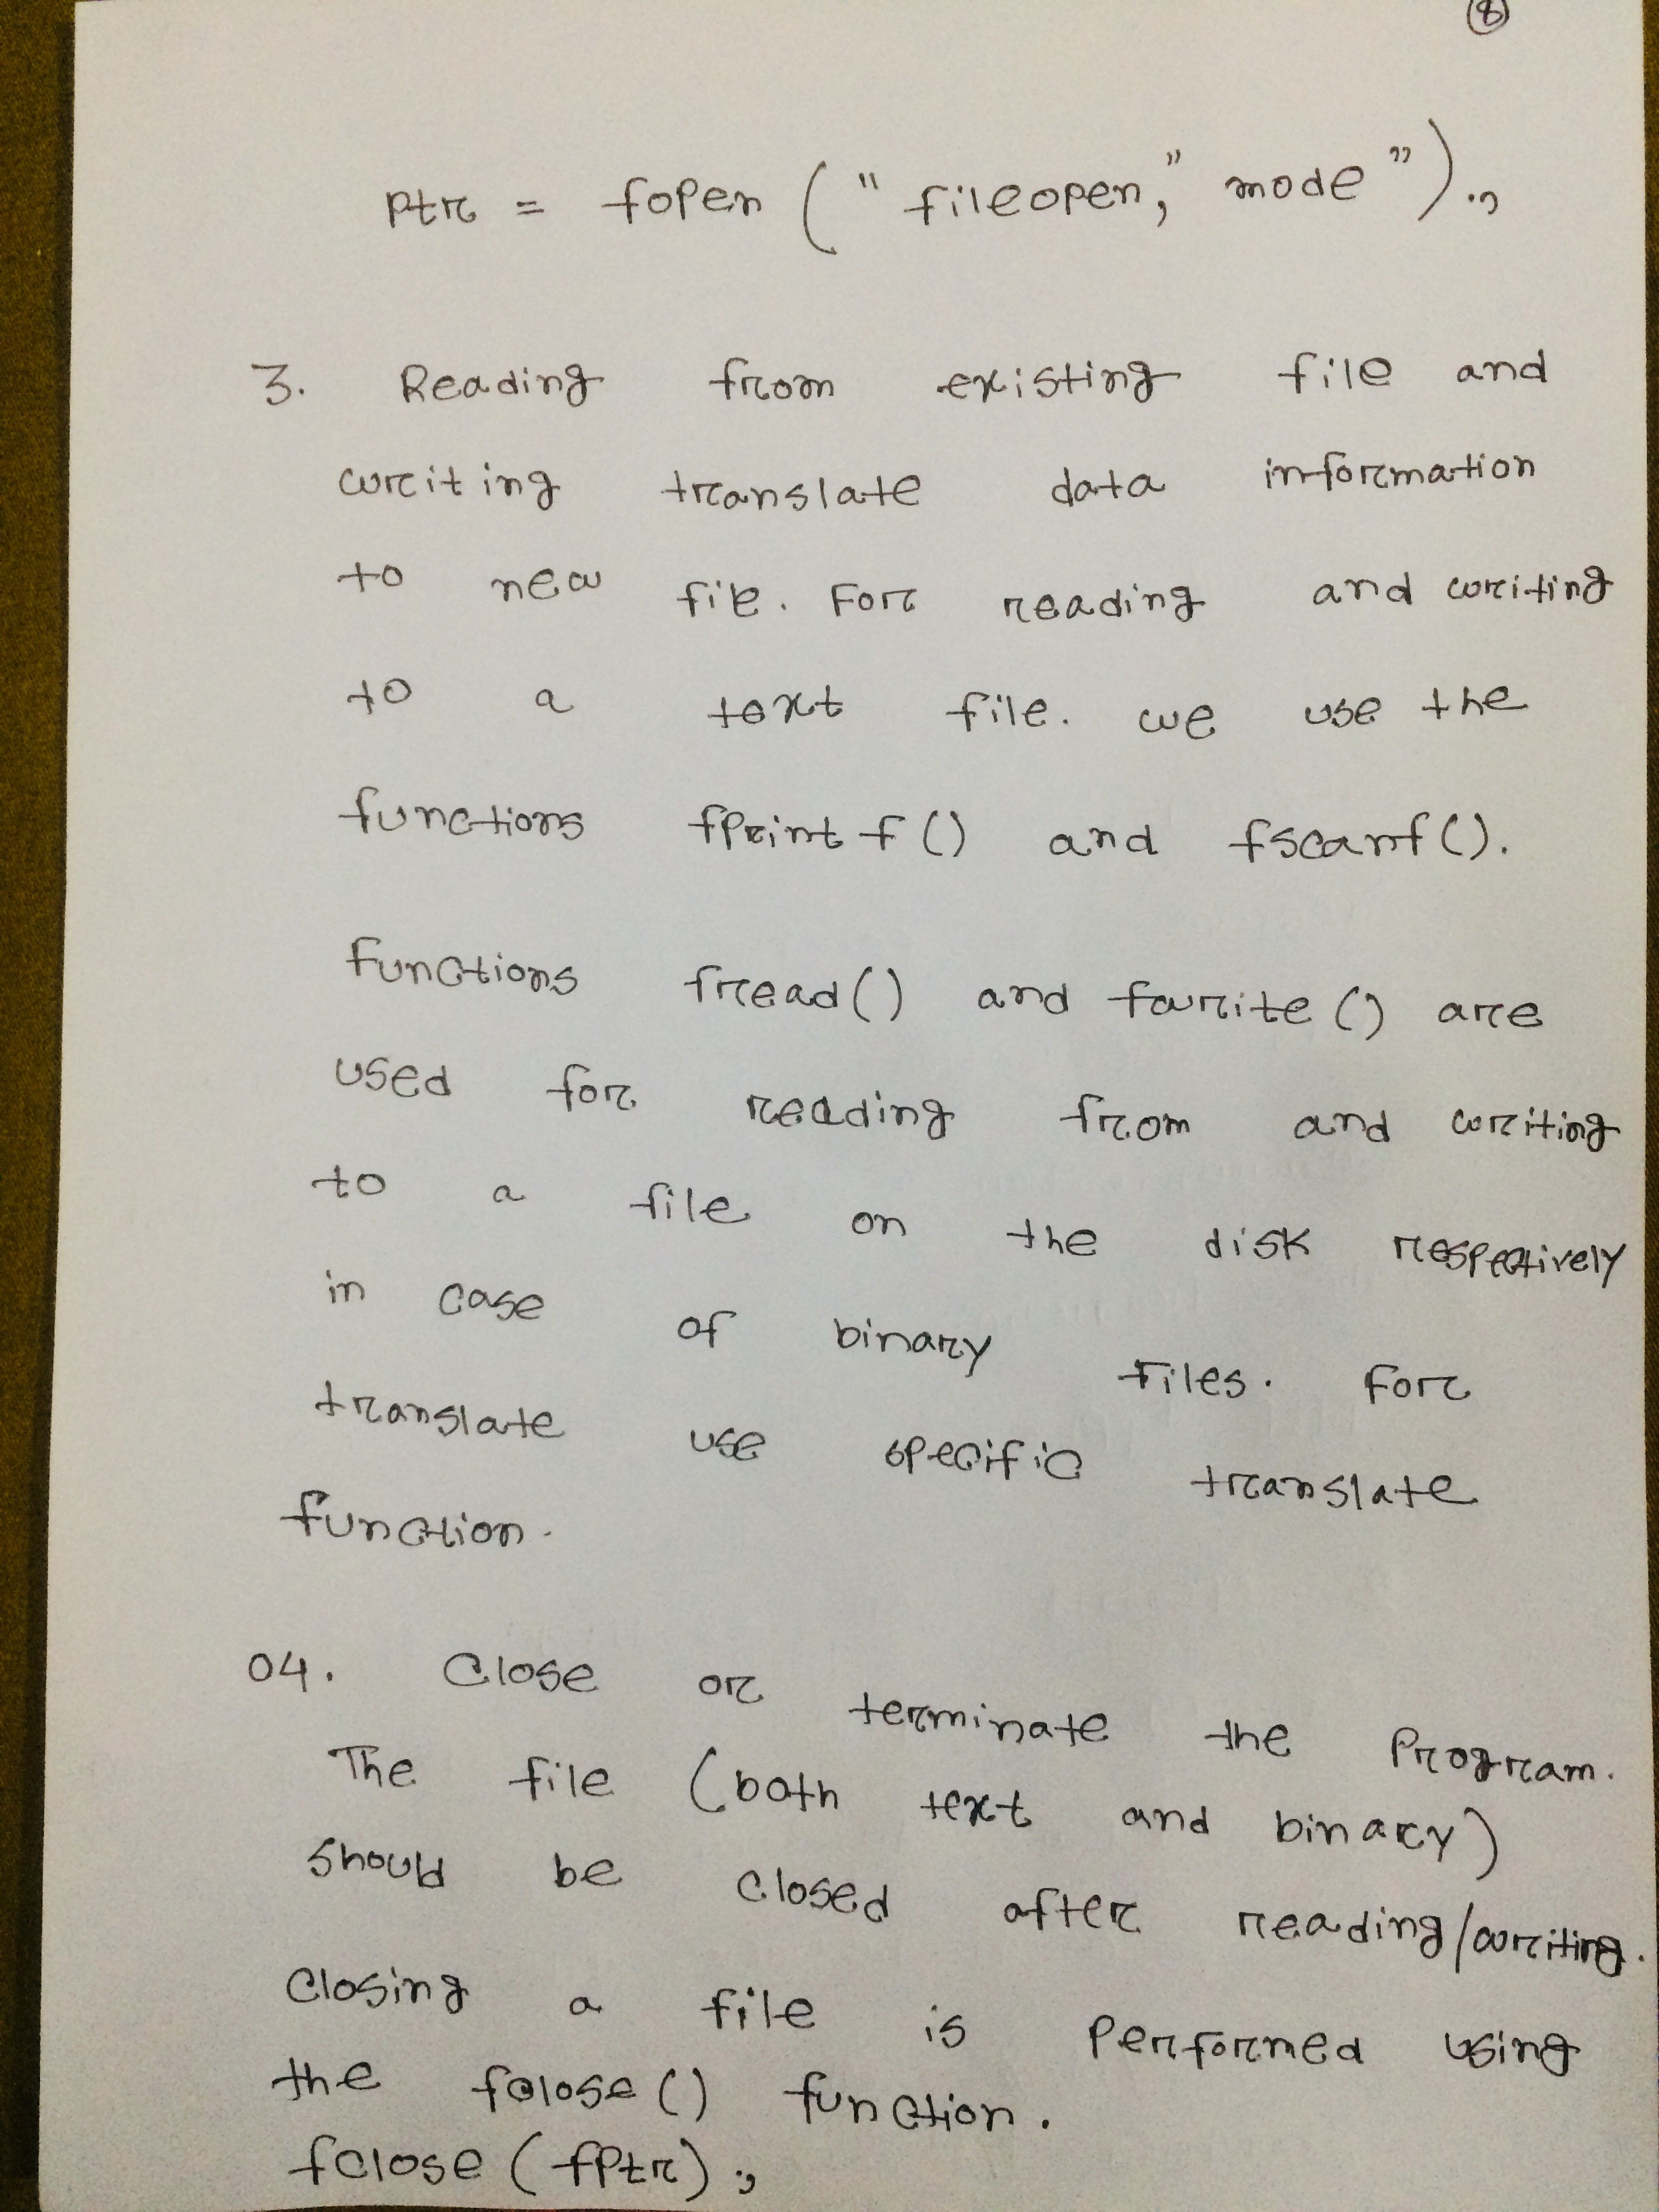 8
ptr = fopen ("fileopen," mode");
3. Reading from existing file and
writing translate data information
to new file. For reading and writing
to a text file. we use the
functions fprintf() and fscanf().
Functions fread() and fwrite() are
used for reading from and writing
to a file on the disk respectively
in case of binary files. For
translate use specific translate
function.
04. Close or terminate the Program.
The file (both text and binary)
should be closed after reading/writing.
Closing a file is performed using
the fclose() function.
fclose (fptr);